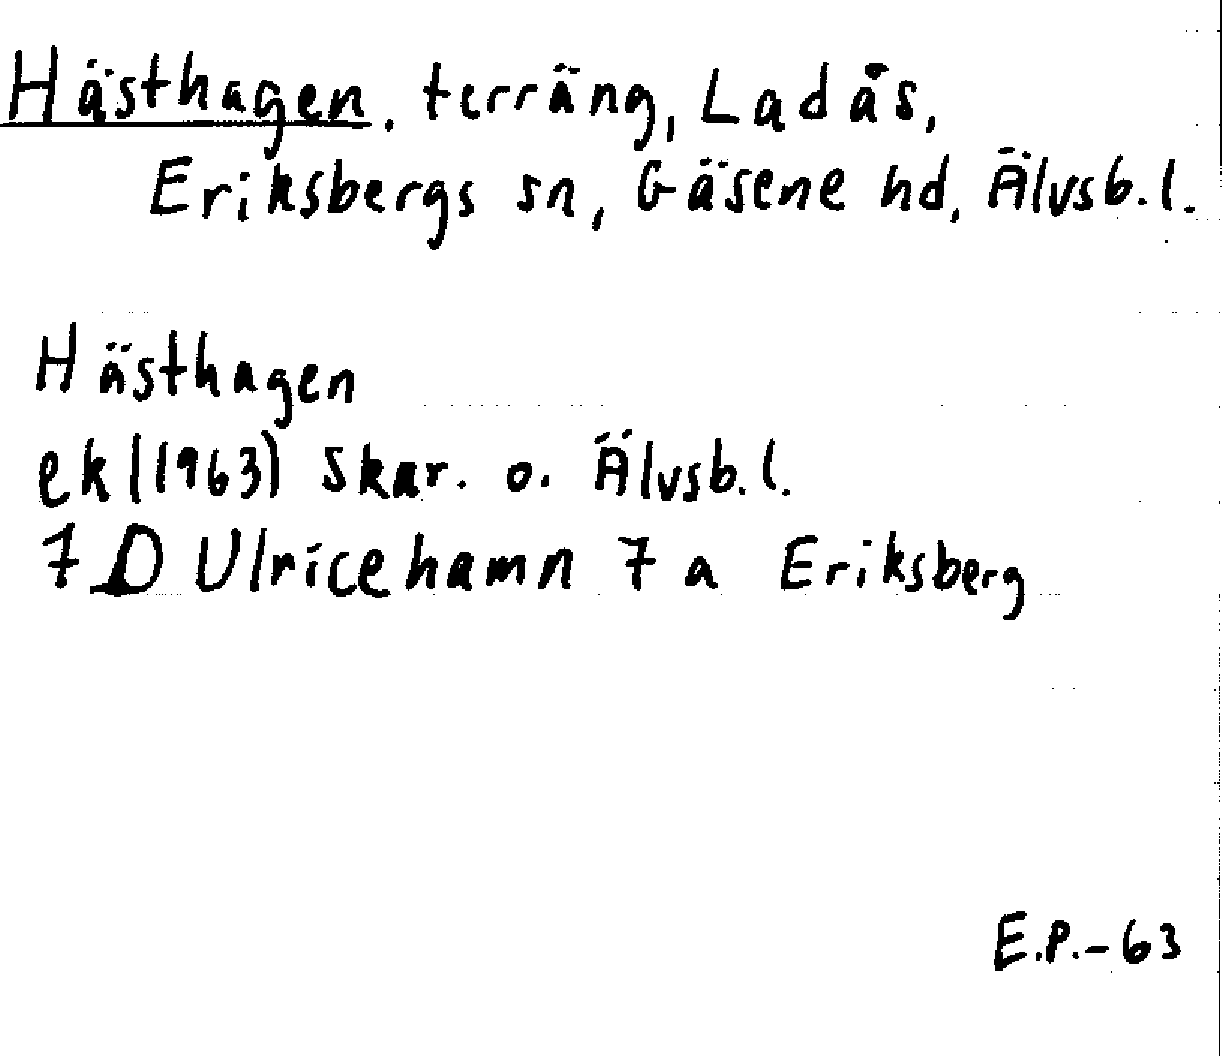 Hästhagen, terräng, Ladås,
Eriksbergs sn, Gäsene hd, Älvsb.l.
Hästhagen
ek (1963) Skar. o. Älvsb.l.
7 D Ulricehamn 7 a Eriksberg
E.P.-63